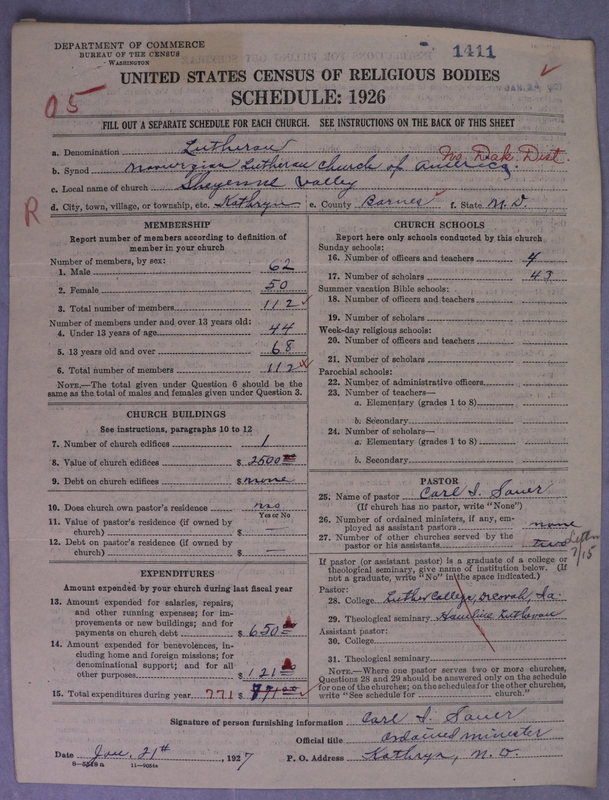 DEPARTMENT OF COMMERCE
BUREAU OF THE CENSUS
WASHINGTON
1411
UNITED STATES CENSUS OF RELIGIOUS BODIES
SCHEDULE: 1926
05
FILL OUT A SEPARATE SCHEDULE FOR EACH CHURCH. SEE INSTRUCTIONS ON THE BACK OF THIS SHEET
a. Denomination Lutheran
No. Dak. Dist.
b. Synod Norwegian Lutheran Church of America.
c. Local name of church Sheyenne Valley
R
d. City, town, village, or township, etc. Kathryn e. County Barnes f. State N. D.
MEMBERSHIP
Report number of members according to definition of member in your church
Number of members, by sex:
1. Male 62
2. Female 50
3. Total number of members 112
Number of members under and over 13 years old:
4. Under 13 years of age 44
5. 13 years old and over 68
6. Total number of members 112
NOTE.—The total given under Question 6 should be the
same as the total of males and females given under Question 3.
CHURCH BUILDINGS
See instructions, paragraphs 10 to 12
7. Number of church edifices 1
8. Value of church edifices $ 2500 00
9. Debt on church edifices $ none
10. Does church own pastor's residence? no
Yes or No
11. Value of pastor's residence (if owned by
church) $ —
12. Debt on pastor's residence (if owned by
church) $ —
EXPENDITURES
Amount expended by your church during last fiscal year
13. Amount expended for salaries, repairs,
and other running expenses; for im-
provements or new buildings; and for
payments on church debt $ 650 00
14. Amount expended for benevolences, in-
cluding home and foreign missions; for
denominational support; and for all
other purposes $ 121 00
15. Total expenditures during year 771 $ 771 00
CHURCH SCHOOLS
Report here only schools conducted by this church
Sunday schools:
16. Number of officers and teachers 4
17. Number of scholars 43
Summer vacation Bible schools:
18. Number of officers and teachers
19. Number of scholars
Week-day religious schools:
20. Number of officers and teachers
21. Number of scholars
Parochial schools:
22. Number of administrative officers
23. Number of teachers—
a. Elementary (grades 1 to 8)
b. Secondary
24. Number of scholars—
a. Elementary (grades 1 to 8)
b. Secondary
PASTOR
25. Name of pastor Carl I. Sauer
(If church has no pastor, write "None")
26. Number of ordained ministers, if any, em-
ployed as assistant pastors none
27. Number of other churches served by the
pastor or his assistants two
7/15
If pastor (or assistant pastor) is a graduate of a college or
theological seminary, give name of institution below. (If
not a graduate, write "No" in the space indicated.)
Pastor:
28. College Luther College, Decorah, Ia.
29. Theological seminary Hamline Lutheran
Assistant pastor:
30. College
31. Theological seminary
NOTE.—Where one pastor serves two or more churches,
Questions 28 and 29 should be answered only on the schedule
for one of the churches; on the schedules for the other churches,
write "See schedule for church."
Signature of person furnishing information Carl I. Sauer
Official title ordained minister
Date Jan. 21st, 1927 P. O. Address Kathryn, N. D.
11—9034a